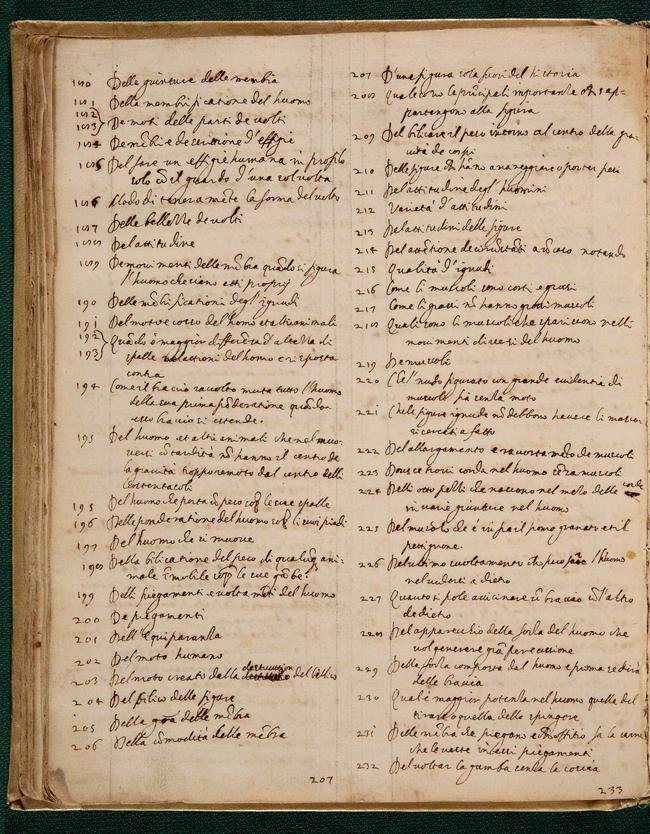 180 Delle giunture delle membra
181 Della membrificatione del huomo
182
183 De moti delle parti de volti
184 De mẽbri e descrittione d'effigie
185 Del fare un effigie humana in profilo
solo cõ il guardo d'una sol volta
186 Modo di tener a mẽte la forma del volto
187 Delle bellezze de volti
188 Del attitudine
189 De movimenti delle mẽbra quãdo si figura
l'huomo che siano atti proprij
190 Delle mẽbrificationi degl'ignudi
191 Del moto e corso del homo et altri animali
192
193 Quãdo è maggior differẽza d'altezza di
spalle nelle attioni del homo e risposta
contra
194 Come il braccio raccolto muta tutto l'huomo
della sua prima põderatione quãdo
esso braccio si estende
195 Del huomo et altri animali che nel muo-
versi cõ tardità nõ hanno il centro de
la gravità troppo remoto dal centro delli
sostentacoli
195 Del huomo che porta ũ peso sopra le sue spalle
196 Della ponderatione del huomo sopra li suoi piedi
197 Del huomo che si muove
198 Della bilicatione del peso di qualũq ani-
male ĩmobile sopra le sue gãbe
199 Delli piegamenti e voltamẽti del huomo
200 De piegamenti
201 Dell'equiparantia
202 Del moto humano
203 Del moto creato dalla destruttion del bilico
204 Del bilico delle figure
205 Della gratia delle mẽbra
206 Della cõmodità delle mẽbra
207
207 D'una figura sola fuori del historia
208 Quale sono le principali importantie ch s'ap-
partengono alla figura
209 Del bilicare il peso intorno al centro della gra-
vità de corpi
210 Delle figure ch hãno a maneggiare o portar pesi
211 Del attitudine degl'huomini
212 Varietà d'attitudini
213 Del attitudini delle figure
214 Del attentione de circũstanti a ũ caso notando
215 Qualità d'ignudi
216 Come li muscoli sono corti e grossi
217 Come li grassi nõ hanno grossi muscoli
218 Quali sono li muscoli che spariscono nelli
movimenti diversi del huomo
219 De muscoli
220 Ch'el nudo figurato con grande evidentia di
muscoli fia senza moto
221 Che le figure ignude nõ debbono havere li muscoli
ricercati a fatto
222 Del allargamento e raccortamẽto de muscoli
223 Dove si trovi corda nel huomo sẽza muscoli
224 Delli otto pezzi che nascono nel mezo delle corde
in varie giunture nel huomo
225 Del muscolo che è infra il pomo granato et il
petignone
226 Del ultimo svoltamento ch può fare l'huomo
nel vedersi a dietro
227 Quanto si pole avicinare ũ braccio cõ l'altro
de dietro
228 Del apparecchio della forza del huomo che
vol generare grã percussione
229 Della forza composta dal huomo e prima se dirà
delle braccia
230 Qual è maggior potenza nel huomo quella del
tirare o quella dello spingere
231 Delle mẽbra che piegano e ch offitio fa la carne
che le veste in essi piegamenti
232 Del voltar la gamba senza la coscia
233